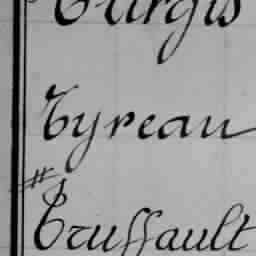 Turgis
Tyreau
#
Truffault